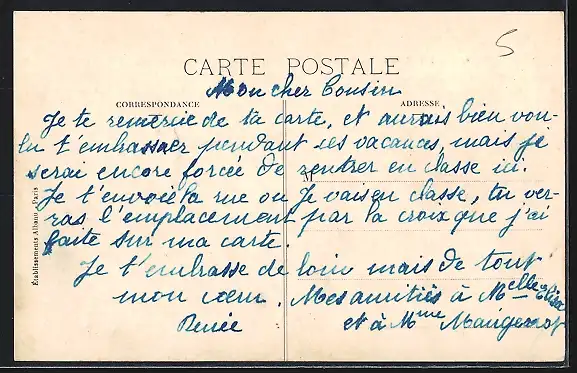 5
CARTE POSTALE
Mon cher Cousin
CORRESPONDANCE
ADRESSE
Je te remercie de ta carte, et aurais bien vou-
lu t'embrasser pendant ses vacances, mais je
serai encore forcée de rentrer en classe ici.
M
Je t'envoie la rue ou Je vais en classe, tu ver-
ras l'emplacement par la croix que j'ai
faite sur ma carte.
Je t'embrasse de loin mais de tout
mon cœur. Mes amitiés à Melle Elisa
Renée et à Mme Maugenot
Établissements Albano, Paris